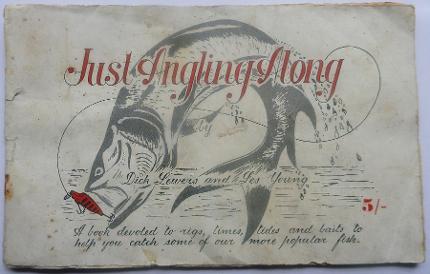 Just Angling Along
by
Dick Lewers and Les Young
5/-
A book devoted to rigs, times, tides and baits to
help you catch some of our more popular fish.